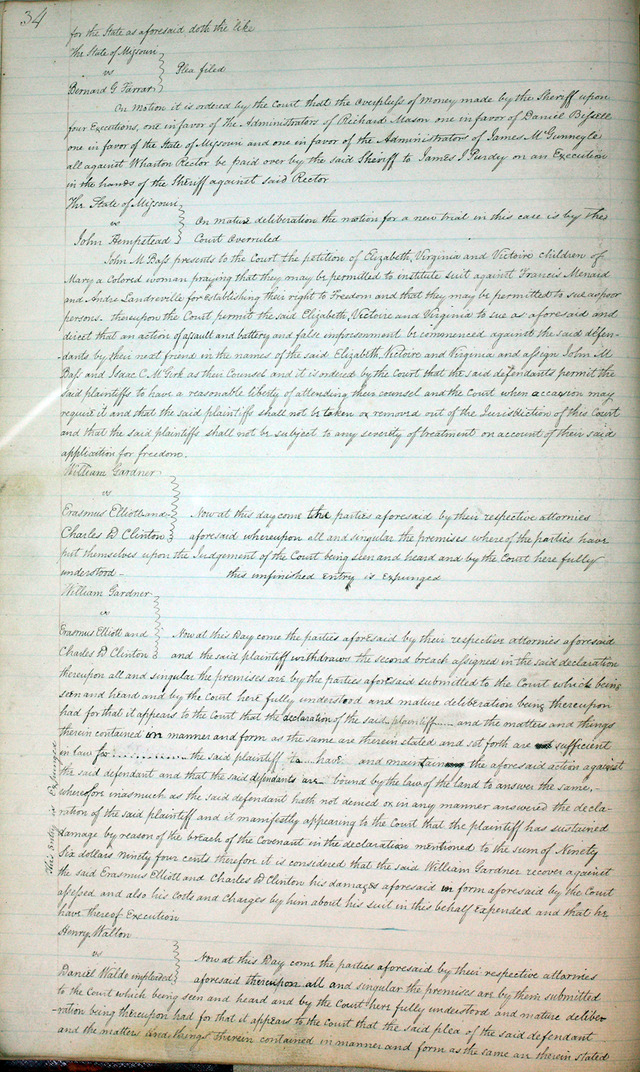 34
for the State as aforesaid doth the like
The State of Missouri
vs
Plea filed
Bernard G Farrar
On motion it is ordered by the Court that the overplus of money made by the Sheriff upon
four Executions, one in favor of The Administrators of Richard Mason one in favor of Daniel Bissell
one in favor of the State of Missouri and one in favor of the Administrators of James McGunnegle
all against Wharton Rector be paid over by the said Sheriff to James J Purdy on an Execution
in the hands of the Sheriff against said Rector
The State of Missouri
vs
On mature deliberation the motion for a new trial in this case is by the
John Hempstead
Court Overruled
John M Bass presents to the Court the petition of Elizabeth, Virginia and Victoire children of
Mary a Colored woman praying that they may be permitted to institute suit against Francis Menard
and Andre Landreville for establishing their right to Freedom and that they may be permitted to sue as poor
persons. thereupon the Court permit the said Elizabeth, Victoire and Virginia to sue as aforesaid and
direct that an action of assault and battery and false imprisonment be commenced against the said defen-
dants by their next friend in the names of the said Elizabeth Victoire and Virginia and assign John M
Bass and Isaac C. McGirk as their Counsel and it is ordered by the Court that the said defendants permit the
said plaintiffs to have a reasonable liberty of attending their counsel and the Court when occasion may
require it and that the said plaintiffs shall not be taken or removed out of the Jurisdiction of this Court
and that the said plaintiffs shall not be subject to any severity of treatment on account of their said
application for freedom.
William Gardner
vs
Erasmus Elliott and
Now at this day come the parties aforesaid by their respective attornies
Charles D Clinton
aforesaid whereupon all and singular the premises where of the parties have
put themselves upon the Judgement of the Court being seen and heard and by the Court here fully
understood -
this unfinished Entry is Expunged
William Gardner
vs
Erasmus Elliott and
Now at this Day come the parties aforesaid by their respective attornies aforesaid
Charles D Clinton
and the said plaintiff withdraws the second breach assigned in the said declaration
thereupon all and singular the premises are by the parties aforesaid submitted to the Court which being
seen and heard and by the Court here fully understood and mature deliberation being thereupon
had for that it appears to the Court that the declaration of the said plaintiff and the matters and things
therein contained in manner and form as the same are therein stated and set forth are sufficient
in law for the said plaintiff to have and maintain the aforesaid action against
the said defendant and that the said defendants are bound by the law of the land to answer the same, -
wherefore inasmuch as the said defendant hath not denied or in any manner answered the decla-
ration of the said plaintiff and it manifestly appearing to the Court that the plaintiff has sustained
damage by reason of the breach of the Covenant in the declaration mentioned to the sum of Ninety
Six dollars ninety four cents therefor it is considered that the said William Gardner recover against
the said Erasmus Elliott and Charles D Clinton his damages aforesaid in form aforesaid by the Court
assessed and also his costs and charges by him about his suit in this behalf Expended and that he
have thereof Execution
This entry is Expunged
Henry Walton
vs
Now at this Day come the parties aforesaid by their respective attornies
Daniel Waldo impleaded
aforesaid thereupon all and singular the premises are by them submitted
to the Court which being seen and heard and by the Court here fully understood and mature delibe-
-ration being thereupon had for that it appears to the court that the said plea of the said defendant
and the matters and things therein contained in manner and form as the same are therein stated